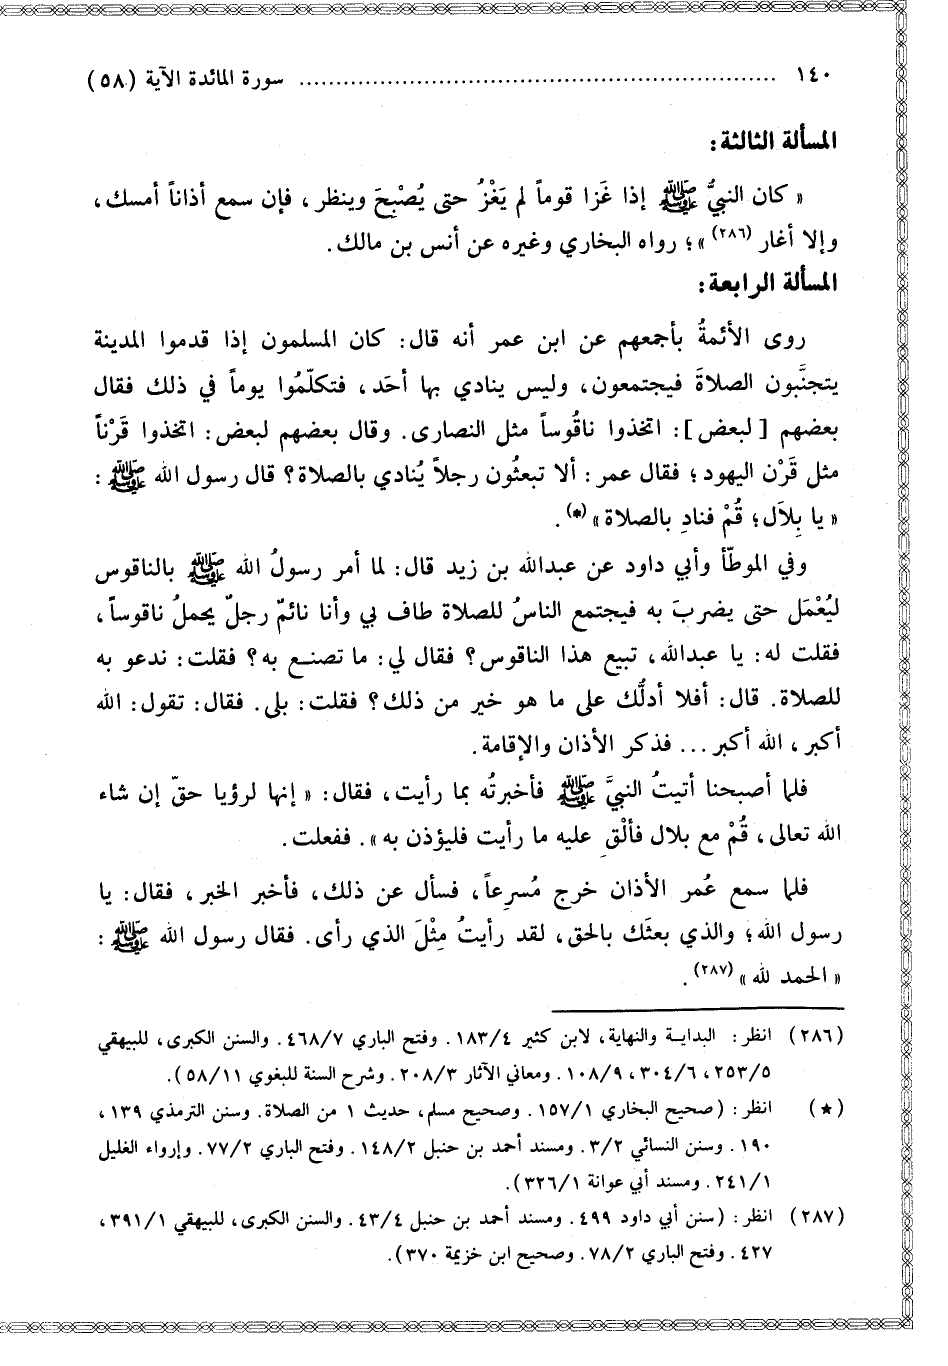 ١٤٠ ................................................................ سورة المائدة الآية (٥٨)
المسألة الثالثة:
« كان النبيُّ ﷺ إذا غَزا قوماً لم يَغْزُ حتى يُصْبِحَ وينظر ، فإن سمع أذاناً أمسك ،
وإلا أغار (٢٨٦) » ؛ رواه البخاري وغيره عن أنس بن مالك.
المسألة الرابعة:
روى الأئمةُ بأجمعهم عن ابن عمر أنه قال: كان المسلمون إذا قدموا المدينة
يتجنَّبون الصلاةَ فيجتمعون، وليس ينادي بها أحَد، فتكلّمُوا يوماً في ذلك فقال
بعضهم [ لبعض ]: اتخذوا ناقُوساً مثل النصارى. وقال بعضهم لبعض: اتخذوا قَرْناً
مثل قَرْن اليهود؛ فقال عمر: ألا تبعثُون رجلاً يُنادي بالصلاة؟ قال رسول الله ﷺ :
« يا بِلاَل؛ قُمْ فنادِ بالصلاة » (*) .
وفي الموطّأ وأبي داود عن عبدالله بن زيد قال: لما أمر رسولُ الله ﷺ بالناقوس
ليُعْمَل حتى يضربَ به فيجتمع الناسُ للصلاة طاف بي وأنا نائمٌ رجلٌ يحملُ ناقوساً،
فقلت له: يا عبدالله، تبيع هذا الناقوس؟ فقال لي: ما تصنع به؟ فقلت: ندعو به
للصلاة. قال: أفلا أدلُّك على ما هو خير من ذلك؟ فقلت: بلى. فقال: تقول: الله
أكبر، الله أكبر... فذكر الأذان والإقامة.
فلما أصبحنا أتيتُ النبيَّ ﷺ فأخبرتُه بما رأيت، فقال: « إنها لرؤيا حقّ إن شاء
الله تعالى، قُمْ مع بلال فألْقِ عليه ما رأيت فليؤذن به ». ففعلت.
فلما سمع عُمر الأذان خرج مُسرِعاً، فسأل عن ذلك، فأخبر الخبر، فقال: يا
رسول الله؛ والذي بعثَك بالحق، لقد رأيتُ مِثْلَ الذي رأى. فقال رسول الله ﷺ :
« الحمد لله » (٢٨٧) .
(٢٨٦) انظر: البداية والنهاية، لابن كثير ١٨٣/٤. وفتح الباري ٤٦٨/٧. والسنن الكبرى، للبيهقي
٢٥٣/٥، ٣٠٤/٦، ١٠٨/٩. ومعاني الآثار ٢٠٨/٣. وشرح السنة للبغوي ٥٨/١١).
(★) انظر: (صحيح البخاري ١٥٧/١. وصحيح مسلم، حديث ١ من الصلاة. وسنن الترمذي ١٣٩،
١٩٠. وسنن النسائي ٣/٢. ومسند أحمد بن حنبل ١٤٨/٢. وفتح الباري ٧٧/٢. وإرواء الغليل
٢٤١/١. ومسند أبي عوانة ٣٢٦/١).
(٢٨٧) انظر: (سنن أبي داود ٤٩٩. ومسند أحمد بن حنبل ٤٣/٤. والسنن الكبرى، للبيهقي ٣٩١/١،
٤٢٧. وفتح الباري ٧٨/٢. وصحيح ابن خزيمة ٣٧٠).